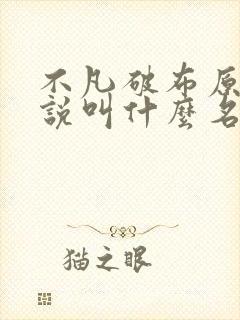 不凡破布原
說叫什麼名
猫之眼